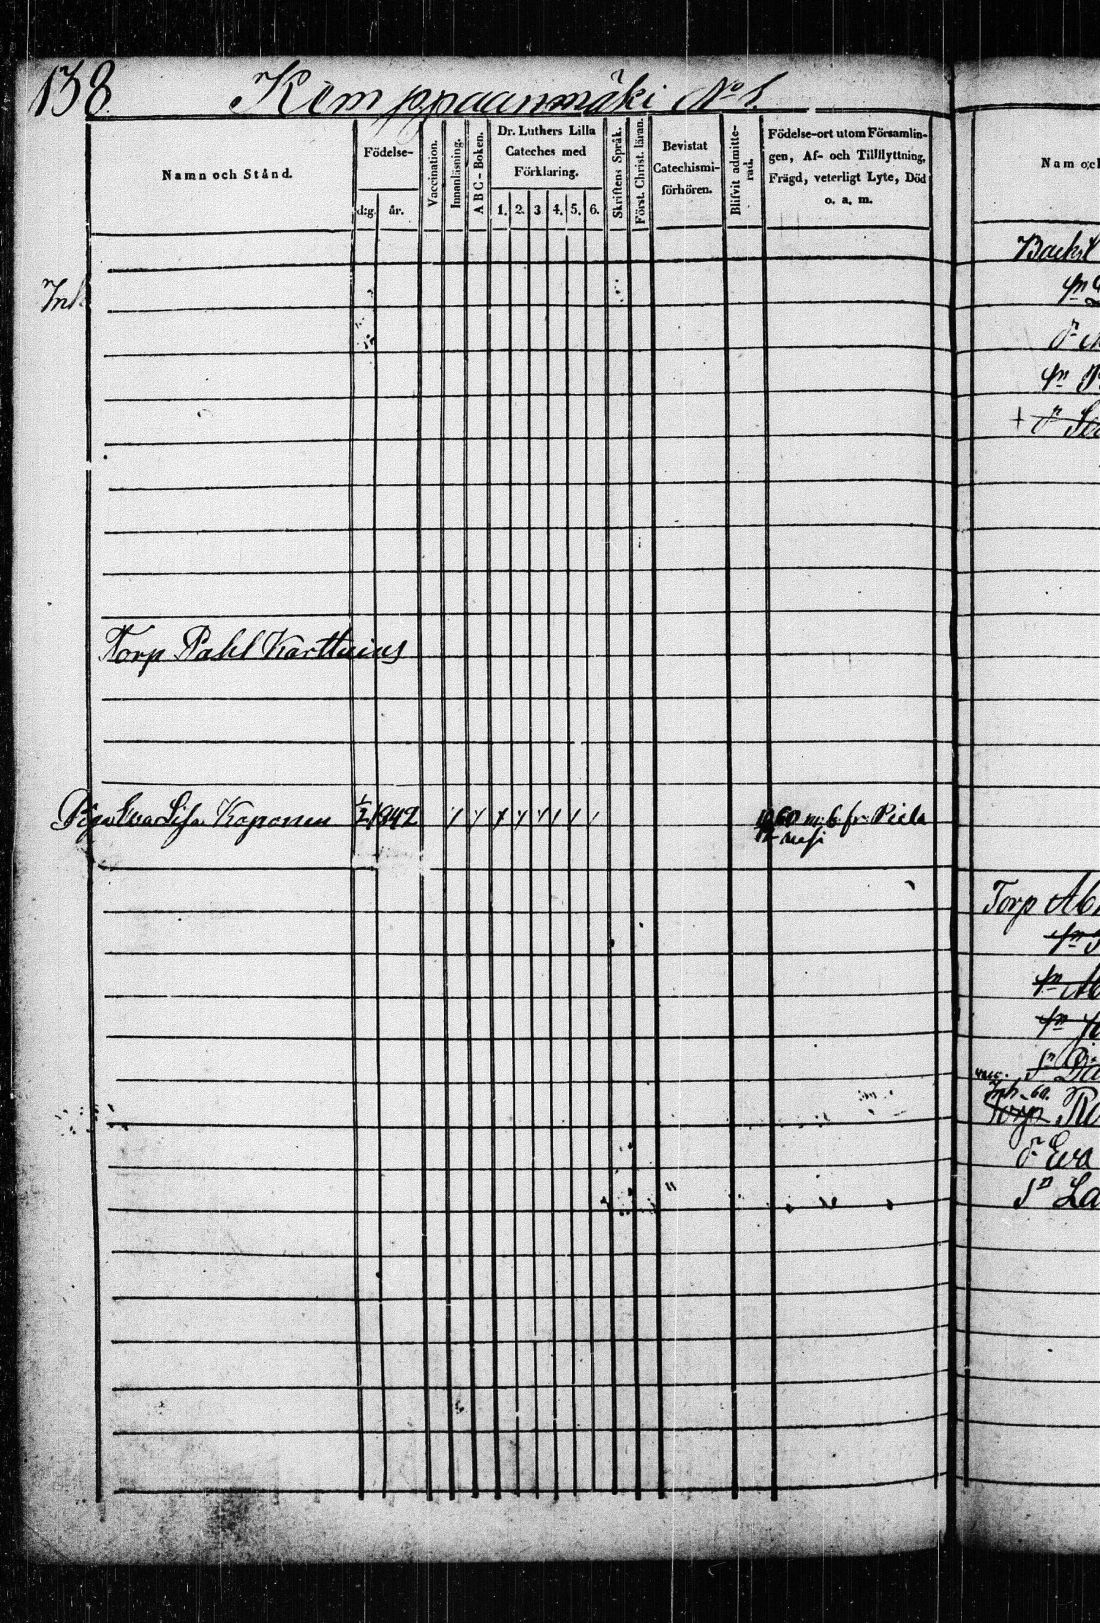 138.
Kemppaanmäki No 1.
Namn och Stånd.
Födelse-
d:g.
år.
Vaccination.
Innanläsning.
ABC-Boken.
Dr. Luthers Lilla
Cateches med
Förklaring.
1. 2. 3 4. 5. 6.
Skriftens Språk.
Först. Christ. läran.
Bevistat
Catechismi-
förhören.
Blifvit admitte-
rad.
Födelse-ort utom Försam­lin-
gen, Af- och Tillflyttning,
Frägd, veterligt Lyte, Död
o. a. m.
Inh
Torp Pahl Karttuins
Pig. Eva Lisa Koponen 1/2 1842 60 m. b. fr. Piela
Nam och
Backst
Torp Ab
Inh. 60.
Torp
dr Eva
Sn La